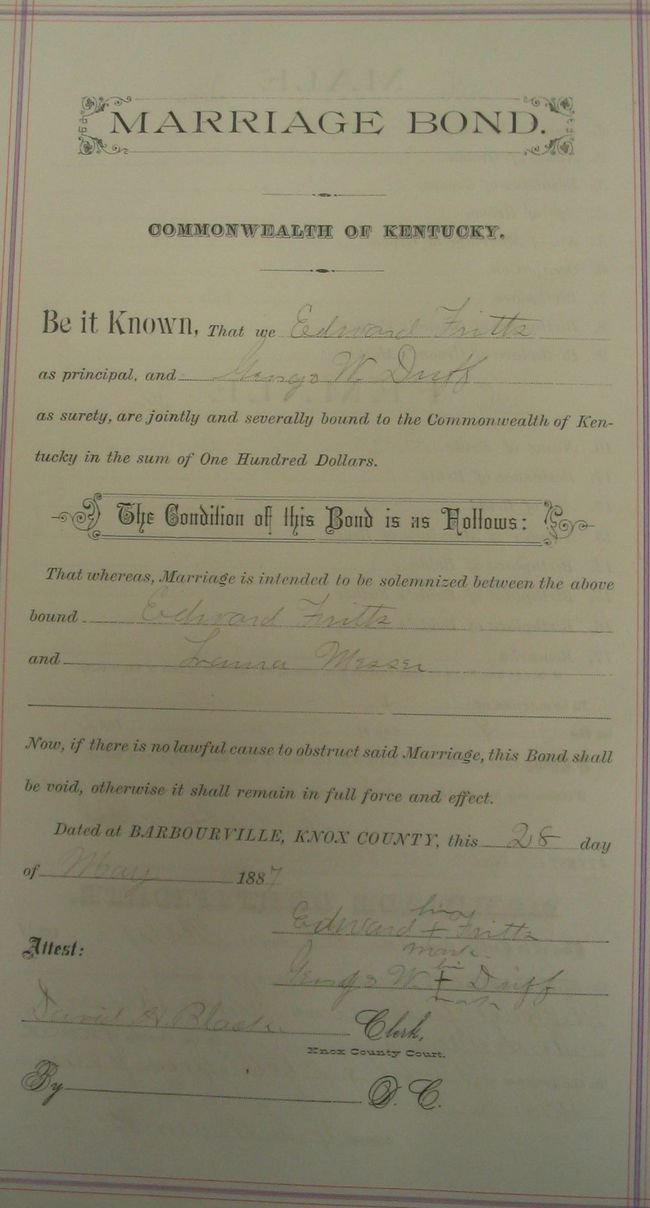 MARRIAGE BOND.
COMMONWEALTH OF KENTUCKY.
Be it Known, That we Edward Fritts
as principal, and W. Duff
as surety, are jointly and severally bound to the Commonwealth of Ken-
tucky in the sum of One Hundred Dollars.
The Condition of this Bond is as Follows:
That whereas, Marriage is intended to be solemnized between the above
bound Edward Fritts
and Messer
Now, if there is no lawful cause to obstruct said Marriage, this Bond shall
be void, otherwise it shall remain in full force and effect.
Dated at BARBOURVILLE, KNOX COUNTY, this 28 day
of May 1887
his
Edward + Fritts
mark
Attest:
his
W. + Duff
mark
David H Black Clerk,
Knox County Court.
By D. C.